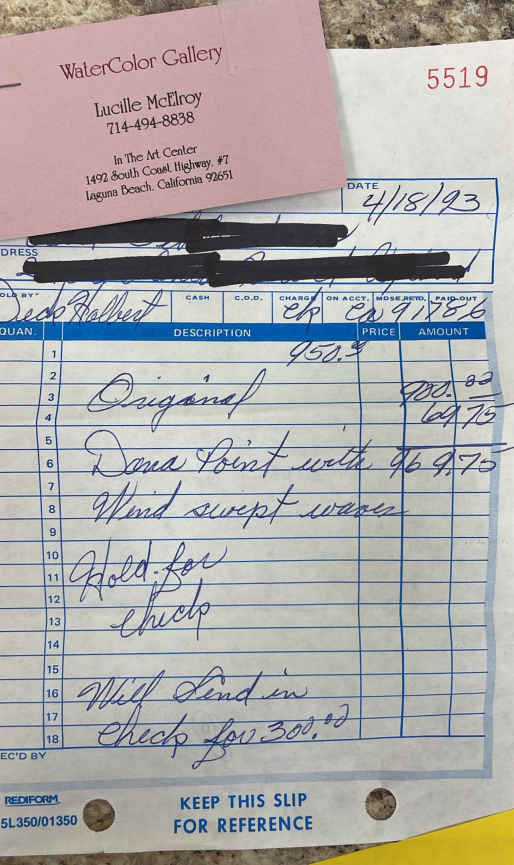 WaterColor Gallery
Lucille McElroy
714-494-8838
In The Art Center
1492 South Coast Highway, #7
Laguna Beach, California 92651
5519
DATE
4/18/93
DRESS
OLD BY CASH C.O.D. CHARGE ON ACCT. MDSE. RETD. PAID OUT
Dick Halbert ck Ca 91786
QUAN. DESCRIPTION PRICE AMOUNT
1 950.
2
3 Original 900.00
4 69 75
5
6 Dana Point with 969.75
7
8 Wind swept waves
9
10
11 Hold for
12
13 check
14
15
16 Will Send in
17
18 check for 300.00
EC'D BY
REDIFORM
5L350/01350
KEEP THIS SLIP
FOR REFERENCE